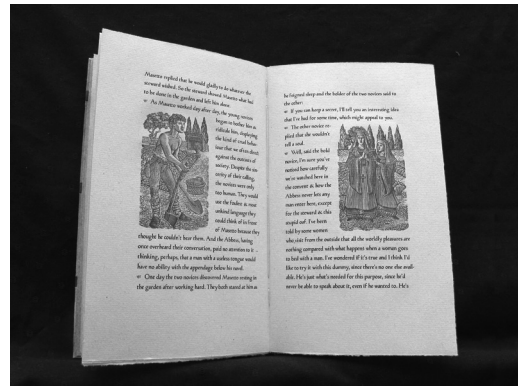 Masetto replied that he would gladly do whatever the
steward wished. So the steward showed Masetto what had
to be done in the garden and left him alone.
As Masetto worked day after day, the young novices
began to bother him and
ridicule him, displaying
the kind of cruel behav-
iour that we often direct
against the outcasts of
society. Despite the sin-
cerity of their calling,
the novices were only
too human. They would
use the foulest as most
unkind language they
could think of in front
of Masetto because they
thought he couldn't hear them. And the Abbess, having
once overheard their conversation, paid no attention to it –
thinking, perhaps, that a man with a useless tongue would
have no ability with the appendage below his navel.
One day the two novices discovered Masetto resting in
the garden after working hard. They both stared at him as
he feigned sleep and the bolder of the two novices said to
the other:
If you can keep a secret, I'll tell you an interesting idea
that I've had for some time, which might appeal to you.
The other novice re-
plied that she wouldn't
tell a soul.
Well, said the bold
novice, I'm sure you've
noticed how carefully
we're watched here in
the convent & how the
Abbess never lets any
man enter here, except
for the steward & this
stupid oaf. I've been
told by some women
who visit from the outside that all the worldly pleasures are
nothing compared with what happens when a woman goes
to bed with a man. I've wondered if it's true and I think I'd
like to try it with this dummy, since there's no one else avail-
able. He's just what's needed for this purpose, since he'd
never be able to speak about it, even if he wanted to. He's